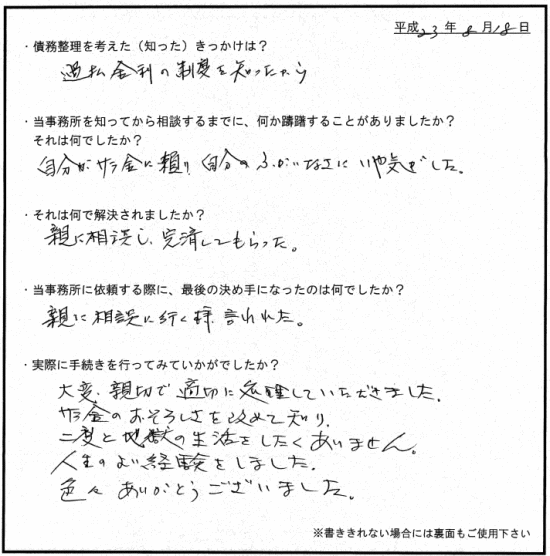 平成23年8月18日
・債務整理を考えた（知った）きっかけは？
過払金利の制度を知ったから
・当事務所を知ってから相談するまでに、何か躊躇することがありましたか？
それは何でしたか？
自分がサラ金に頼り、自分のふがいなさにいや気でした。
・それは何で解決されましたか？
親に相談し、完済してもらった。
・当事務所に依頼する際に、最後の決め手になったのは何でしたか？
親に相談に行く様、言われた。
・実際に手続きを行ってみていかがでしたか？
大変、親切で適切に処理していただきました。
サラ金のおそろしさを改めて知り、
二度と地獄の生活をしたくありません。
人生のよい経験をしました。
色々ありがとうございました。
※書ききれない場合には裏面もご使用下さい